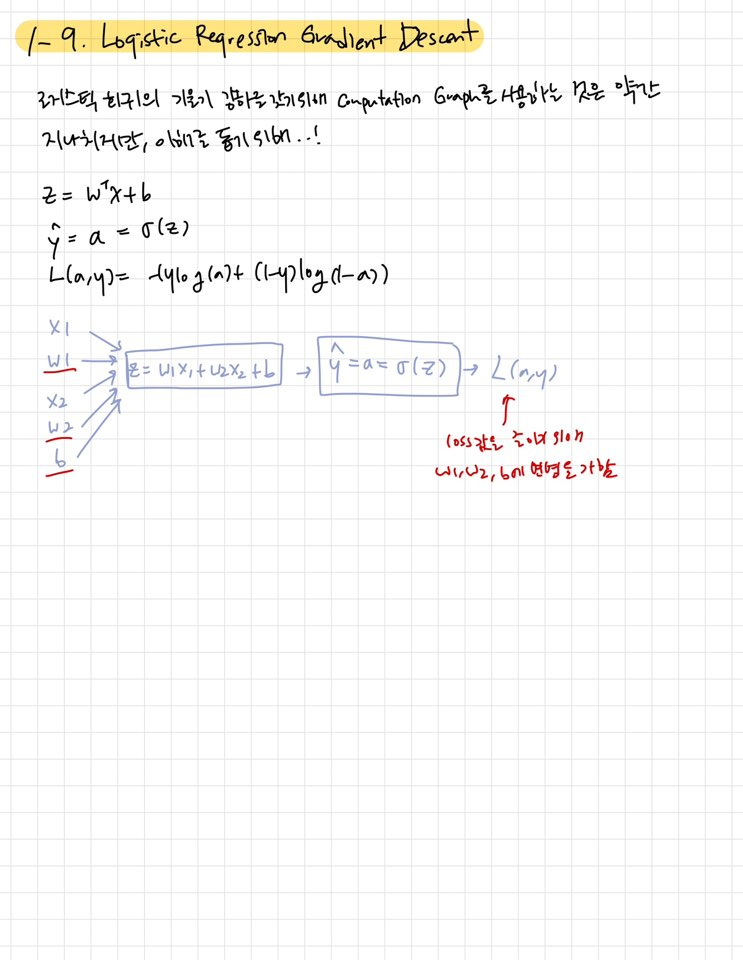 1-9. Logistic Regression Gradient Descent
로지스틱 회귀의 기울기 감하를 갖기위해 Computation Graph를 사용하는 것은 약간
지나치지만, 이해를 돕기 위해..!
z = wᵀx+b
ŷ = a = σ(z)
L(a,y)= -(ylog(a)+ (1-y)log(1-a))
x1
w1
x2
w2
b
z = w1x1+w2x2+b → ŷ=a=σ(z) → L(a,y)
loss값을 줄이기 위해
w1, w2, b에 변형을 가함